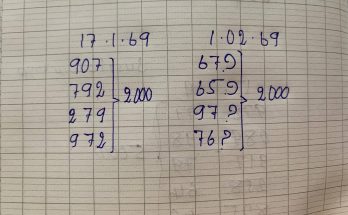 17.1.69
907
792
279
972
2000
1.02.69
67?
65?
97?
76?
2000